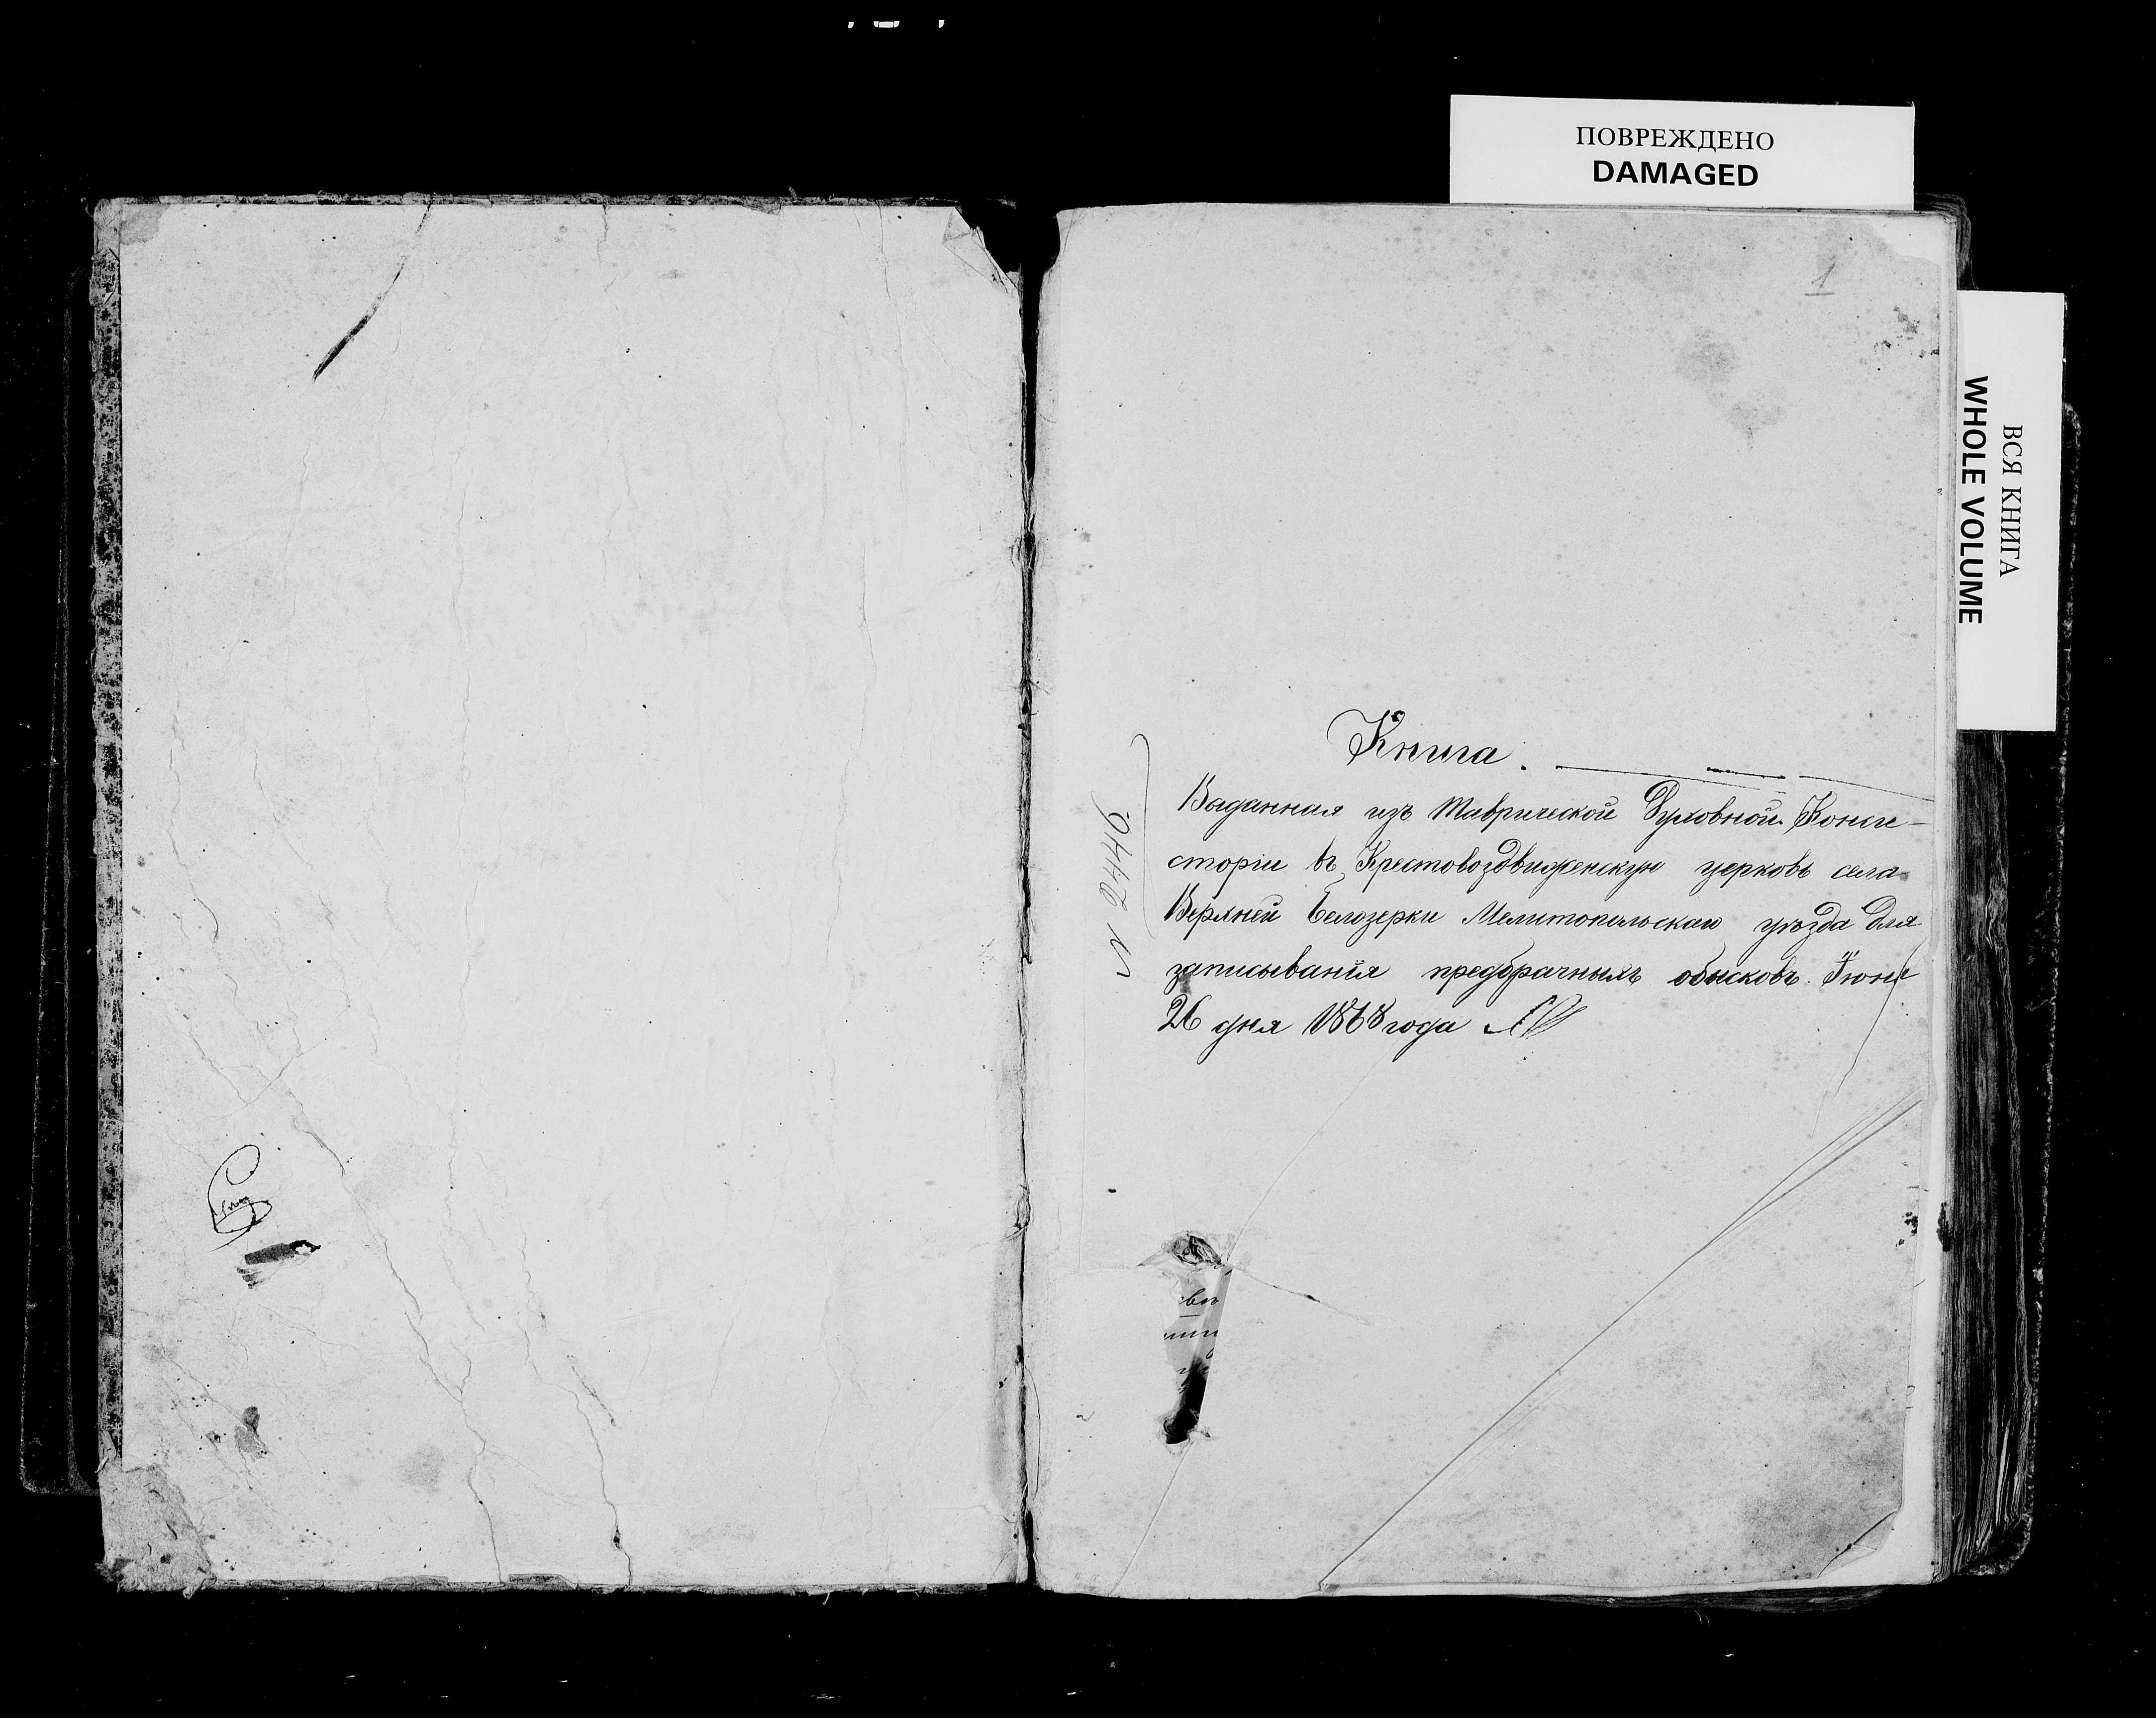 ПОВРЕЖДЕНО
DAMAGED
ВСЯ КНИГА
WHOLE VOLUME
1
Книга.
Выданная изъ Таврической Духовной Конси-
сторіи въ Крестовоздвиженскую церковь села
Верхней Белозерки Мелитопольскаго уѣзда для
записыванія предбрачныхъ обысковъ. Іюня
26 дня 1868 года